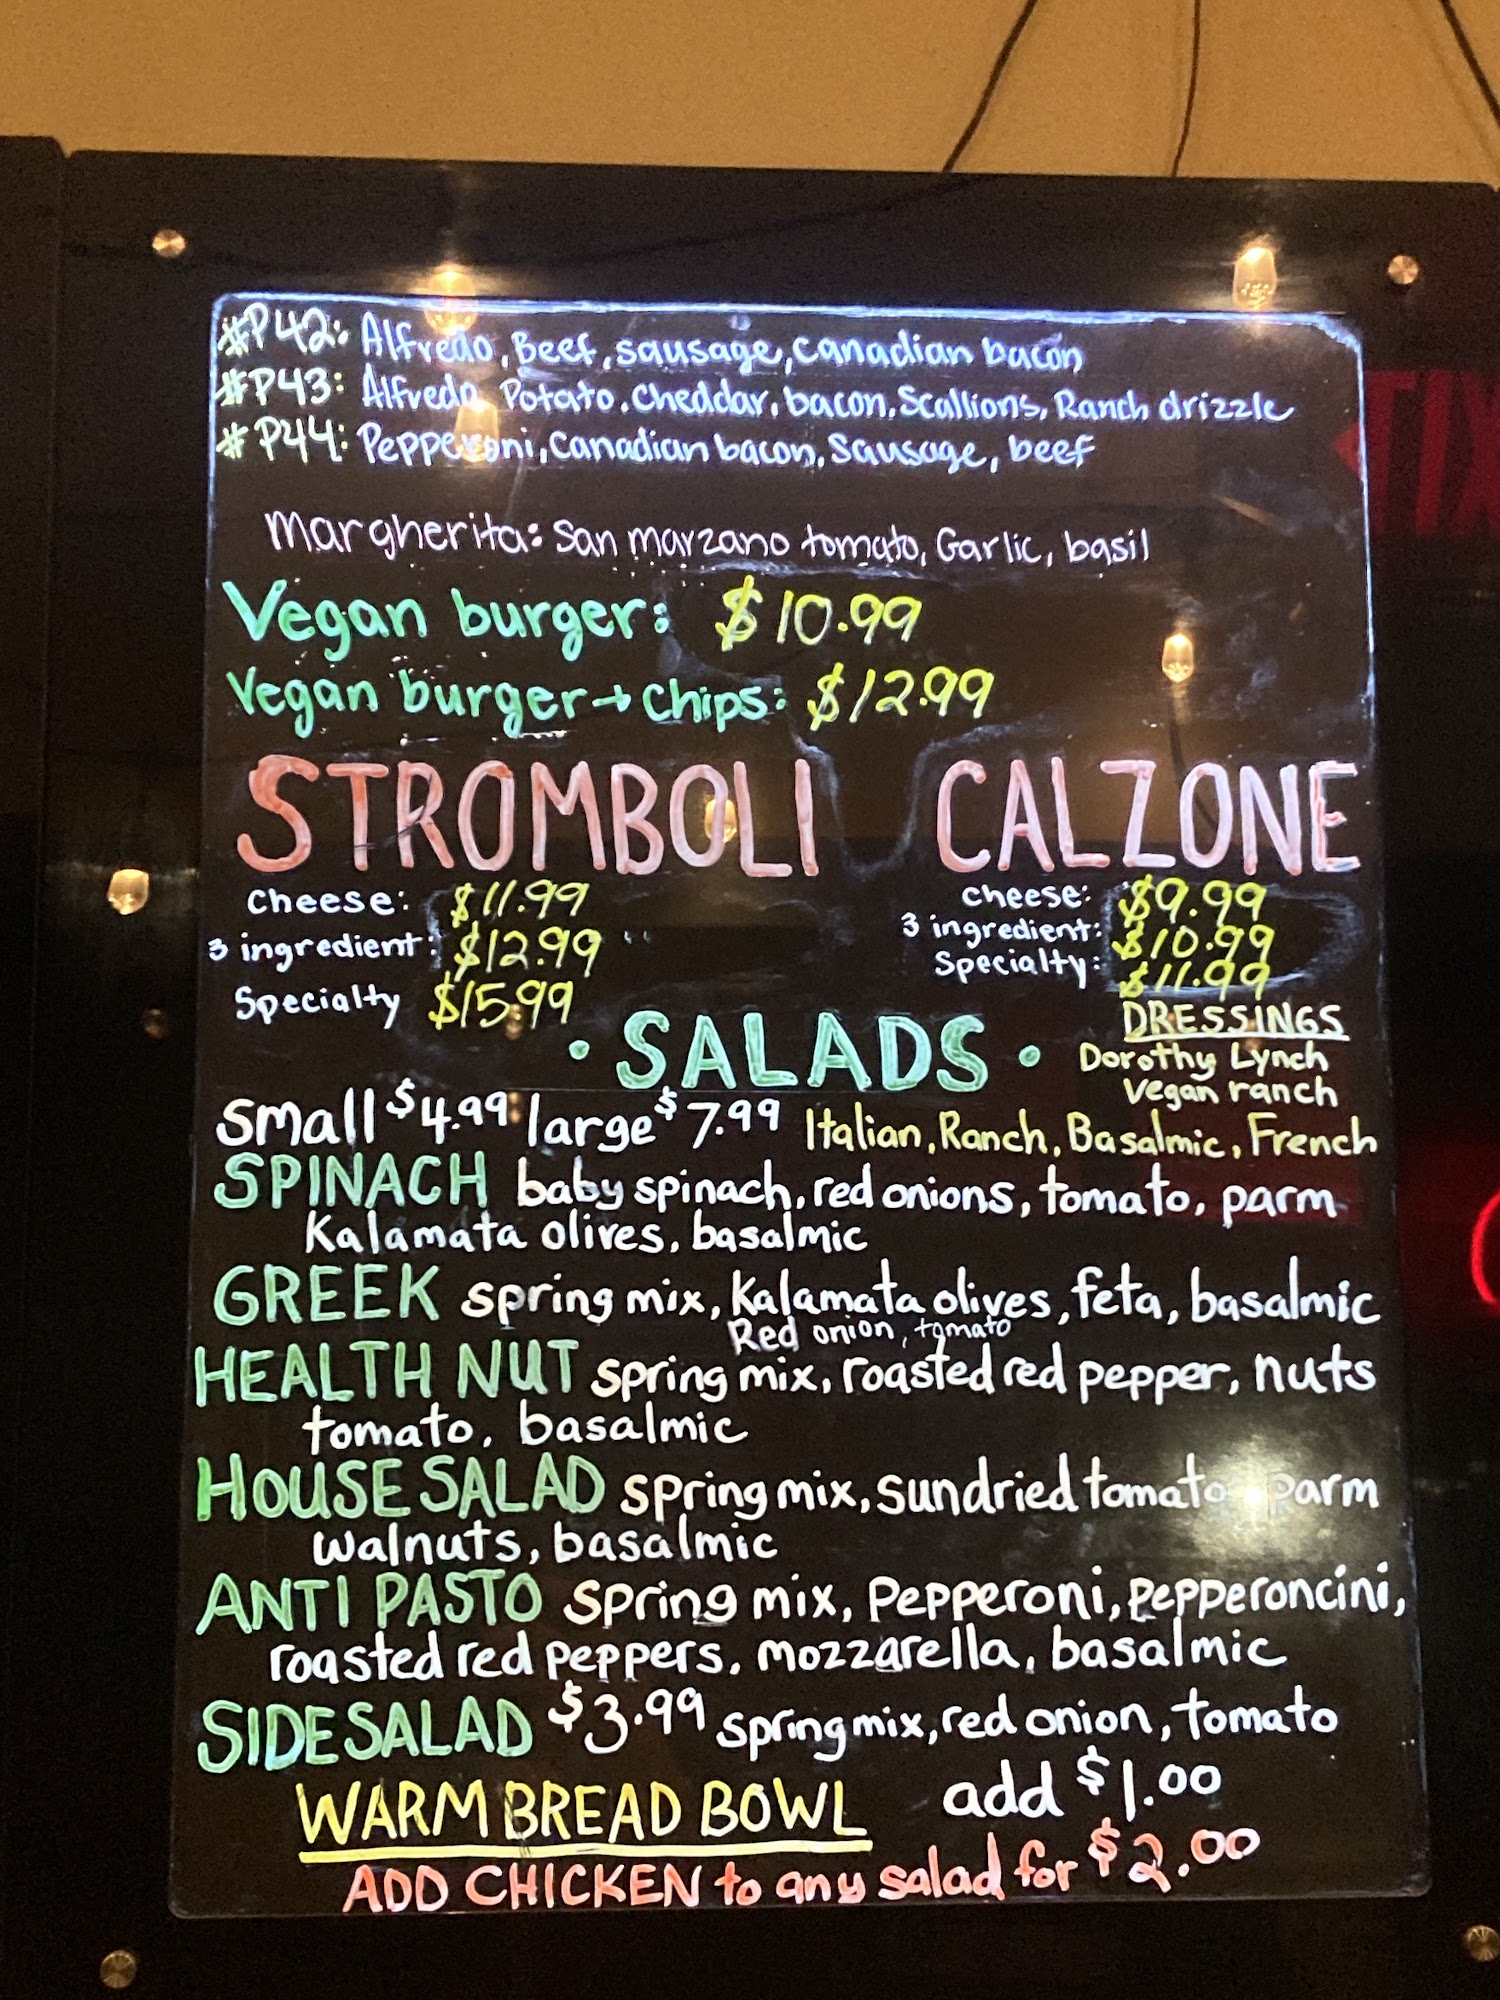 #P42: Alfredo, Beef, sausage, Canadian bacon
#P43: Alfredo, Potato, Cheddar, bacon, Scallions, Ranch drizzle
#P44: Pepperoni, Canadian bacon, Sausage, beef
Margherita: San marzano tomato, Garlic, basil
Vegan burger: $10.99
Vegan burger → chips: $12.99
STROMBOLI CALZONE
Cheese: $11.99
3 ingredient: $12.99
Specialty $15.99
Cheese: $9.99
3 ingredient: $10.99
Specialty: $11.99
• SALADS •
DRESSINGS
Dorothy Lynch
Vegan ranch
small $4.99 large $7.99 Italian, Ranch, Basalmic, French
SPINACH baby spinach, red onions, tomato, parm
Kalamata olives, basalmic
GREEK spring mix, Kalamata olives, feta, basalmic
Red onion, tomato
HEALTH NUT spring mix, roasted red pepper, nuts
tomato, basalmic
HOUSE SALAD spring mix, sundried tomato parm
walnuts, basalmic
ANTI PASTO spring mix, Pepperoni, pepperoncini,
roasted red peppers, mozzarella, basalmic
SIDE SALAD $3.99 spring mix, red onion, tomato
WARM BREAD BOWL add $1.00
ADD CHICKEN to any salad for $2.00